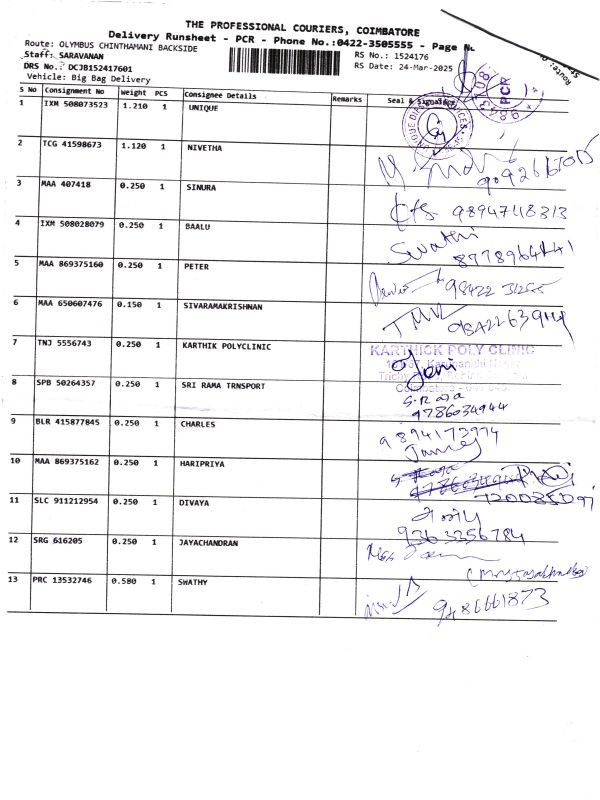 THE PROFESSIONAL COURIERS, COIMBATORE
Delivery Runsheet - PCR - Phone No.:0422-3505555 - Page
Route: OLYMBUS CHINTHAMANI BACKSIDE RS No.: 1524176
Staff: SARAVANAN RS Date: 24-Mar-2025
DRS No.: DCJB152417601
Vehicle: Big Bag Delivery
Route:
PCR
S No Consignment No Weight PCS Consignee Details Remarks Seal & Signature
1 IXM 508073523 1.210 1 UNIQUE
2 TCG 41598673 1.120 1 NIVETHA
3 MAA 407418 0.250 1 SINURA 9894748313
4 IXM 508028079 0.250 1 BAALU Swathi
8778964441
5 MAA 869375160 0.250 1 PETER 98422
6 MAA 650607476 0.150 1 SIVARAMAKRISHNAN
7 TNJ 5556743 0.250 1 KARTHIK POLYCLINIC KARTHICK POLY CLINIC
8 SPB 50264357 0.250 1 SRI RAMA TRNSPORT
9786034944
9 BLR 415877845 0.250 1 CHARLES 9894173974
James
10 MAA 869375162 0.250 1 HARIPRIYA
11 SLC 911212954 0.250 1 DIVAYA
9363256784
12 SRG 616205 0.250 1 JAYACHANDRAN
13 PRC 13532746 0.580 1 SWATHY 9486661873